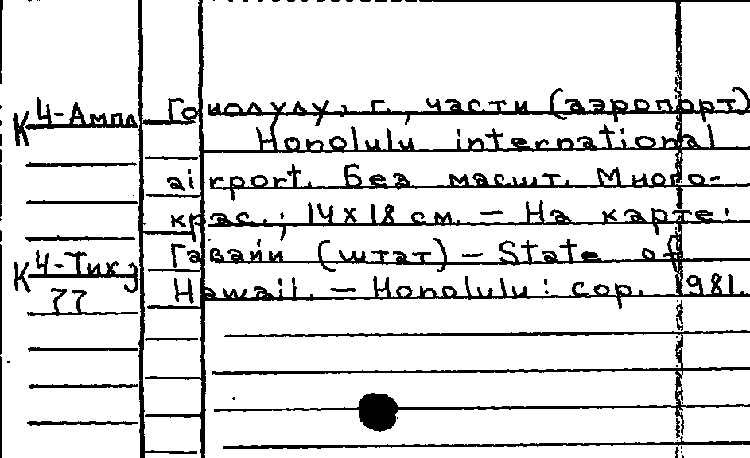 К 4-Ампл
Гонолулу, г., части (аэропорт)
Honolulu international
airport. Без масшт. Много-
крас.; 14х18 см. — На карте:
Гавайи (штат) — State of
Hawaii. — Honolulu: cop. 1981.
К 4-Тихэ
77